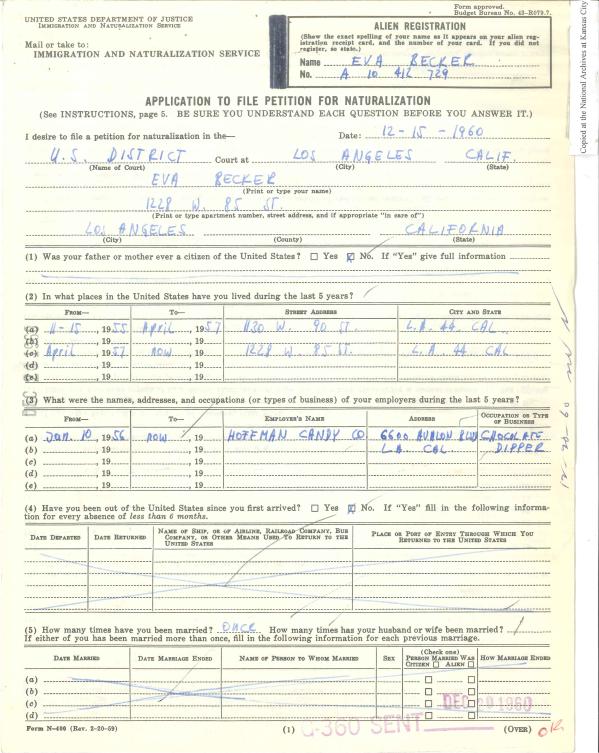 Form approved.
Budget Bureau No. 43-R079.7.
UNITED STATES DEPARTMENT OF JUSTICE
IMMIGRATION AND NATURALIZATION SERVICE
Mail or take to:
IMMIGRATION AND NATURALIZATION SERVICE
ALIEN REGISTRATION
(Show the exact spelling of your name as it appears on your alien registration receipt card, and the number of your card. If you did not register, so state.)
Name EVA BECKER
No. A 10 412 729
Copied at the National Archives at Kansas City
APPLICATION TO FILE PETITION FOR NATURALIZATION
(See INSTRUCTIONS, page 5. BE SURE YOU UNDERSTAND EACH QUESTION BEFORE YOU ANSWER IT.)
I desire to file a petition for naturalization in the— Date: 12-15-1960
U.S. DISTRICT Court at LOS ANGELES CALIF.
(Name of Court) (City) (State)
EVA BECKER
(Print or type your name)
1228 W. 85 ST.
(Print or type apartment number, street address, and if appropriate "in care of")
LOS ANGELES CALIFORNIA
(City) (County) (State)
(1) Was your father or mother ever a citizen of the United States? Yes No. If "Yes" give full information
(2) In what places in the United States have you lived during the last 5 years?
FROM— TO— STREET ADDRESS CITY AND STATE
(a) 11-15, 1955 April 1957 1130 W. 90 ST. L.A. 44. CAL.
(c) April, 1957 now, 19 1228 W. 85 ST. L.A. 44. CAL
(d) , 19 , 19
(e) , 19 , 19
(3) What were the names, addresses, and occupations (or types of business) of your employers during the last 5 years?
FROM— TO— EMPLOYER'S NAME ADDRESS OCCUPATION OR TYPE OF BUSINESS
(a) Jan. 10, 1956 now, 19 HOFFMAN CANDY CO. 6600 AVALON BLVD CHOCOLATE
(b) , 19 , 19 L.A. CAL. DIPPER
(c) , 19 , 19
(d) , 19 , 19
(e) , 19 , 19
(4) Have you been out of the United States since you first arrived? Yes No. If "Yes" fill in the following information for every absence of less than 6 months.
DATE DEPARTED DATE RETURNED NAME OF SHIP, OR OF AIRLINE, RAILROAD COMPANY, BUS COMPANY, OR OTHER MEANS USED TO RETURN TO THE UNITED STATES PLACE OR PORT OF ENTRY THROUGH WHICH YOU RETURNED TO THE UNITED STATES
(5) How many times have you been married? ONCE How many times has your husband or wife been married? 1
If either of you has been married more than once, fill in the following information for each previous marriage.
DATE MARRIED DATE MARRIAGE ENDED NAME OF PERSON TO WHOM MARRIED SEX (Check one) PERSON MARRIED WAS CITIZEN ALIEN HOW MARRIAGE ENDED
(a)
(b)
(c)
(d)
DEC 20 1960
G-360 SENT
Form N-400 (Rev. 2-20-59) (1) (OVER)
OK